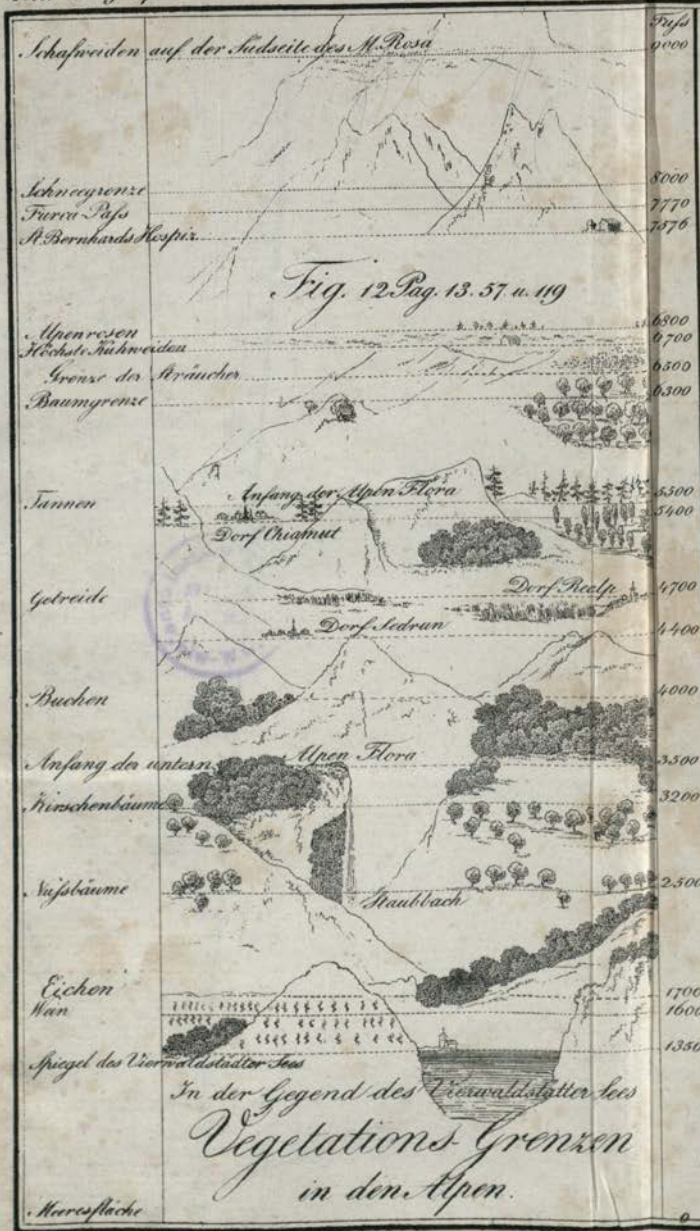 Fuſs
Schafweiden auf der Südseite des M. Rosa 9000
Schneegrenze 8000
Furca-Paſs 7770
St. Bernhards Hospiz 7576
Fig. 12 Pag. 13. 57. u. 119
Alpenrosen 6800
Höchste Kühweiden 6700
Grenze der Sträucher 6500
Baumgrenze 6300
Anfang der Alpen Flora 5500
Tannen 5400
Dorf Chiamut
Dorf Realp 4700
Getreide
Dorf Sedrun 4400
Buchen 4000
Anfang der untern Alpen Flora 3500
Kirschenbäume 3200
Nuſsbäume 2500
Staubbach
Eichen 1700
Wein 1600
1350
Spiegel des Vierwaldstädter Sees
In der Gegend des Vierwaldstätter Sees
Vegetations-Grenzen
in den Alpen.
Meeresfläche 0